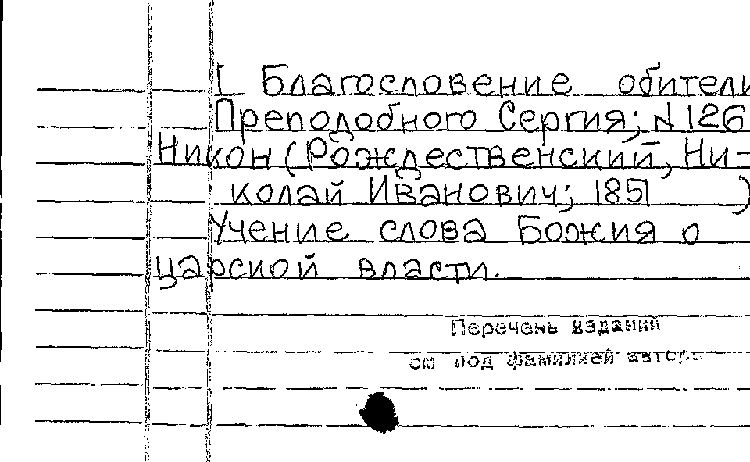 I Благословение обители
Преподобного Сергия; N 126
Никон (Рождественский, Ни-
колай Иванович; 1851 )
Учение слова Божия о
царской власти.
Перечень изданий
см под фамилией автора